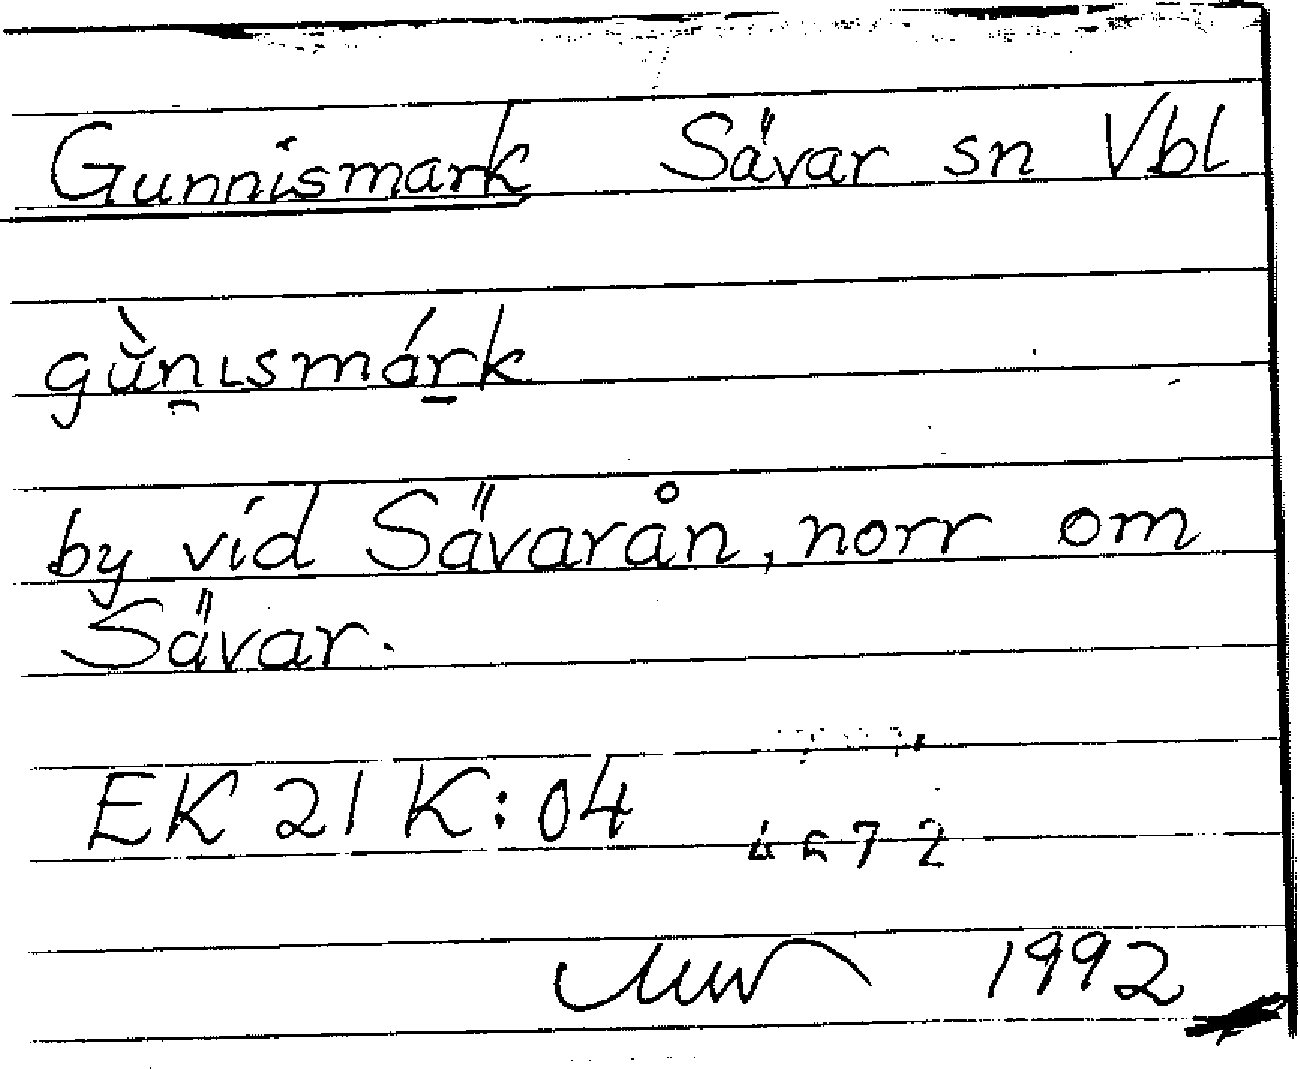 Gunnismark Sävar sn Vbl
gŭ̀n̯ɩsmárk
by vid Sävarån, norr om
Sävar.
EK 21 K:04
1992